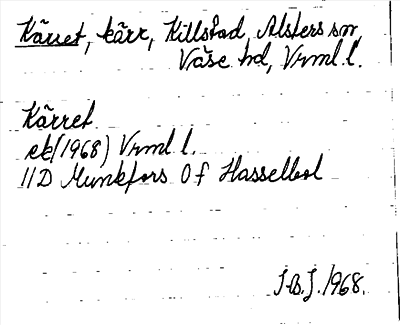 Kärret, kärr, Killstad, Alsters sn,
Väse hd, Vrml l.
Kärret
ek (1968) Vrml l.
11D Munkfors 0 f Hasselbol
J.B.J. 1968.